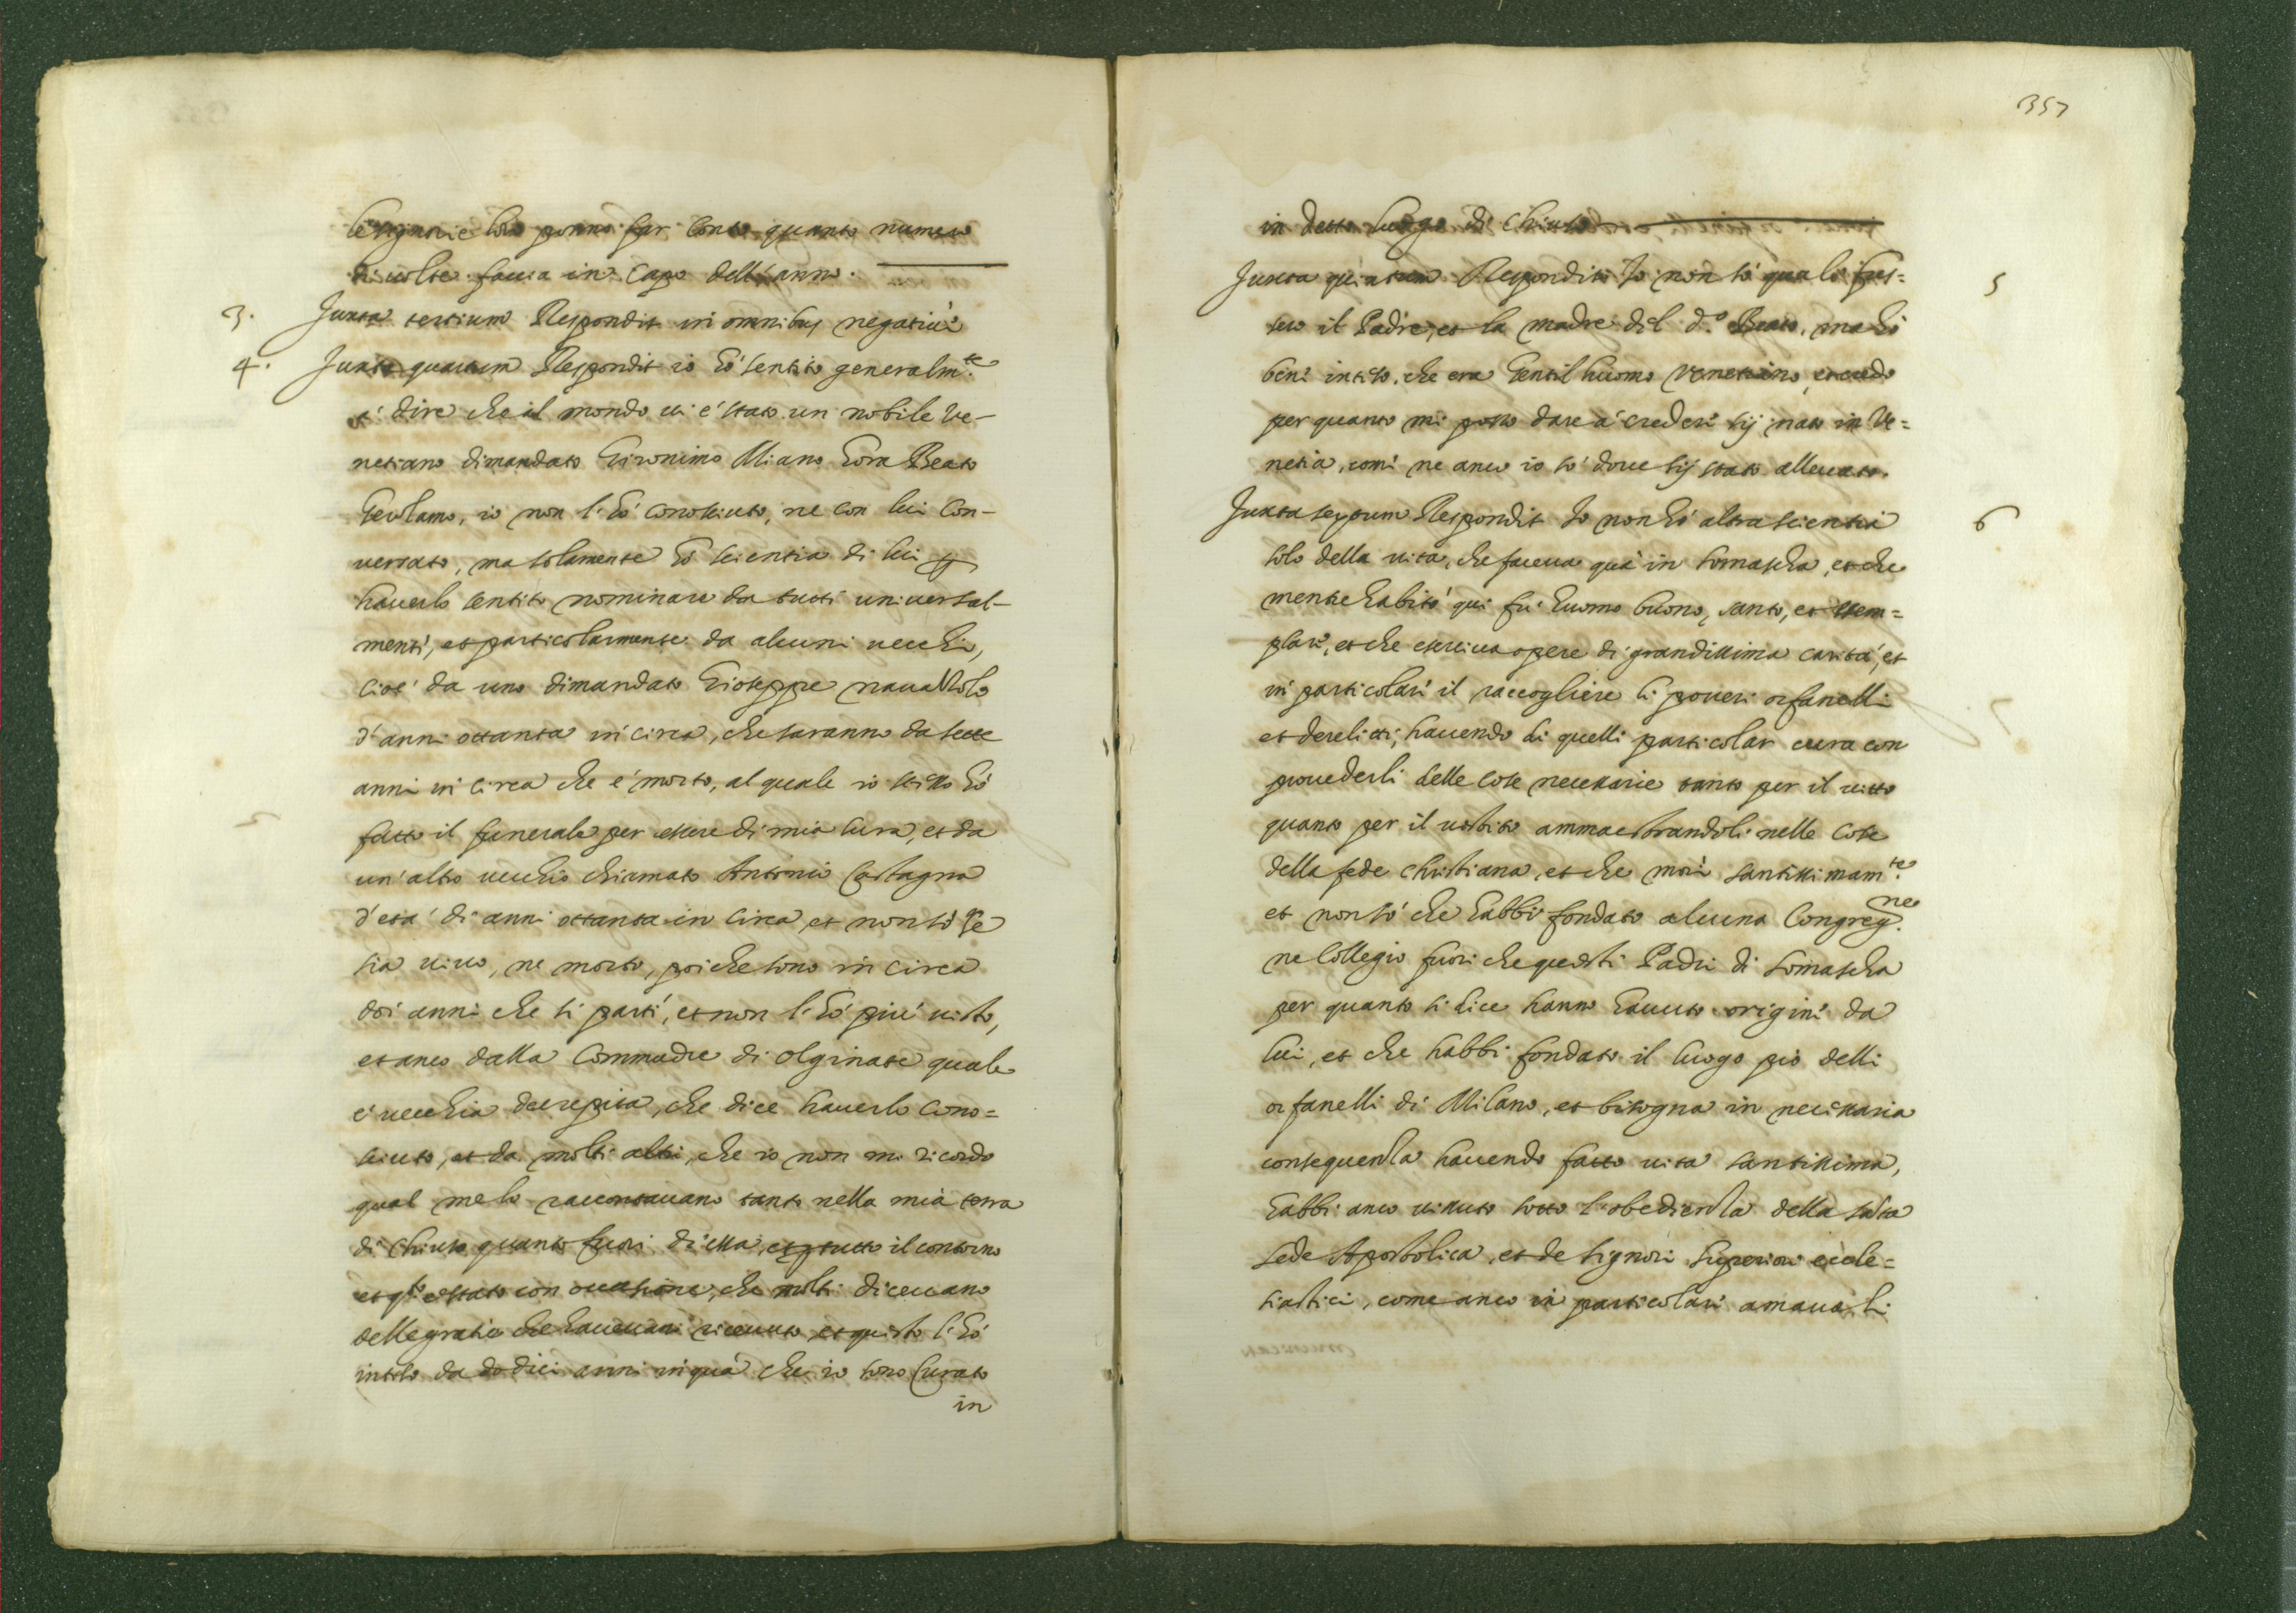 le signorie loro ponno far conto quanto numero
di volte facia in capo dell'anno.
3. Juxta tertium Respondit in omnibus negative
4. Juxta quartum Respondit io hó sentito generalm.te
á dire che al mondo vi é stato un nobile Ve-
netiano dimandato Gironimo Miano hora Beato
Gerolamo, io non l'hó conosciuto, ne con lui con-
versato, ma solamente hó scientia di lui p
haverlo sentito nominare da tutti universal-
mente, et particolarmente da alcuni vecchi,
cioé da uno dimandato Gioseppe navassolo
d'anni ottanta in circa, che saranno da sette
anni in circa che é morto, al quale io stesso hó
fatto il funerale per essere di mia cura, et da
un'altro vecchio chiamato Antonio Castagna
d'etá di anni ottanta in circa, et non só se
sia vivo, ne morto, poiche sono in circa
doi anni che si partí, et non l'hó piú visto,
et anco dalla Commadre di Olginate quale
é vecchia decrepita, che dice haverlo cono=
sciuto, et da molti altri, che io non mi ricordo
qual me lo raccontavano tanto nella mia terra
di Chiuso quanto fuori di essa, et p tutto il contorno
et q.to é stato con occasione, che molti dicevano
delle gratie che havevano ricevuto, et questo l'hó
inteso da dodici anni in quá che io sono Curato
in
357
in detto luogo di Chiuso
Juxta quintum Respondit Io non só quali fus= 5
sero il Padre, et la madre del d.o Beato, ma hó
bene inteso, che era Gentilhuomo Venetiano, et credo
per quanto mi posso dare á credere sij nato in Ve=
netia, come ne anco io só dove sij stato allevato.
Juxta sextum Respondit Io non hó altra scientia 6
solo della vita, che faceva quá in Somascha, et che
mentre habitó qui fú huomo buono, santo, et essem=
plare, et che eserciva opere di grandissima caritá, et
in particolare il raccogliere li poveri orfanelli
et derelitti, havendo di quelli particolar cura con
provederli delle cose necessarie tanto per il vitto
quanto per il vestito ammaestrandoli nelle cose
della fede christiana, et che morì santissimam.te
et non só che habbi fondato alcuna Congreg.ne
ne Collegio fuori che questi Padri di Somascha
per quanto si dice hanno havuto origine da
lui, et che habbi fondato il luogo pio delli
orfanelli di Milano, et bisogna in necessaria
consequenza havendo fatto vita santissima,
habbi anco vissuto sotto l'obedienza della s.ta
sede Apostolica, et de signori superiori eccle=
siastici, come anco in particolare amava li